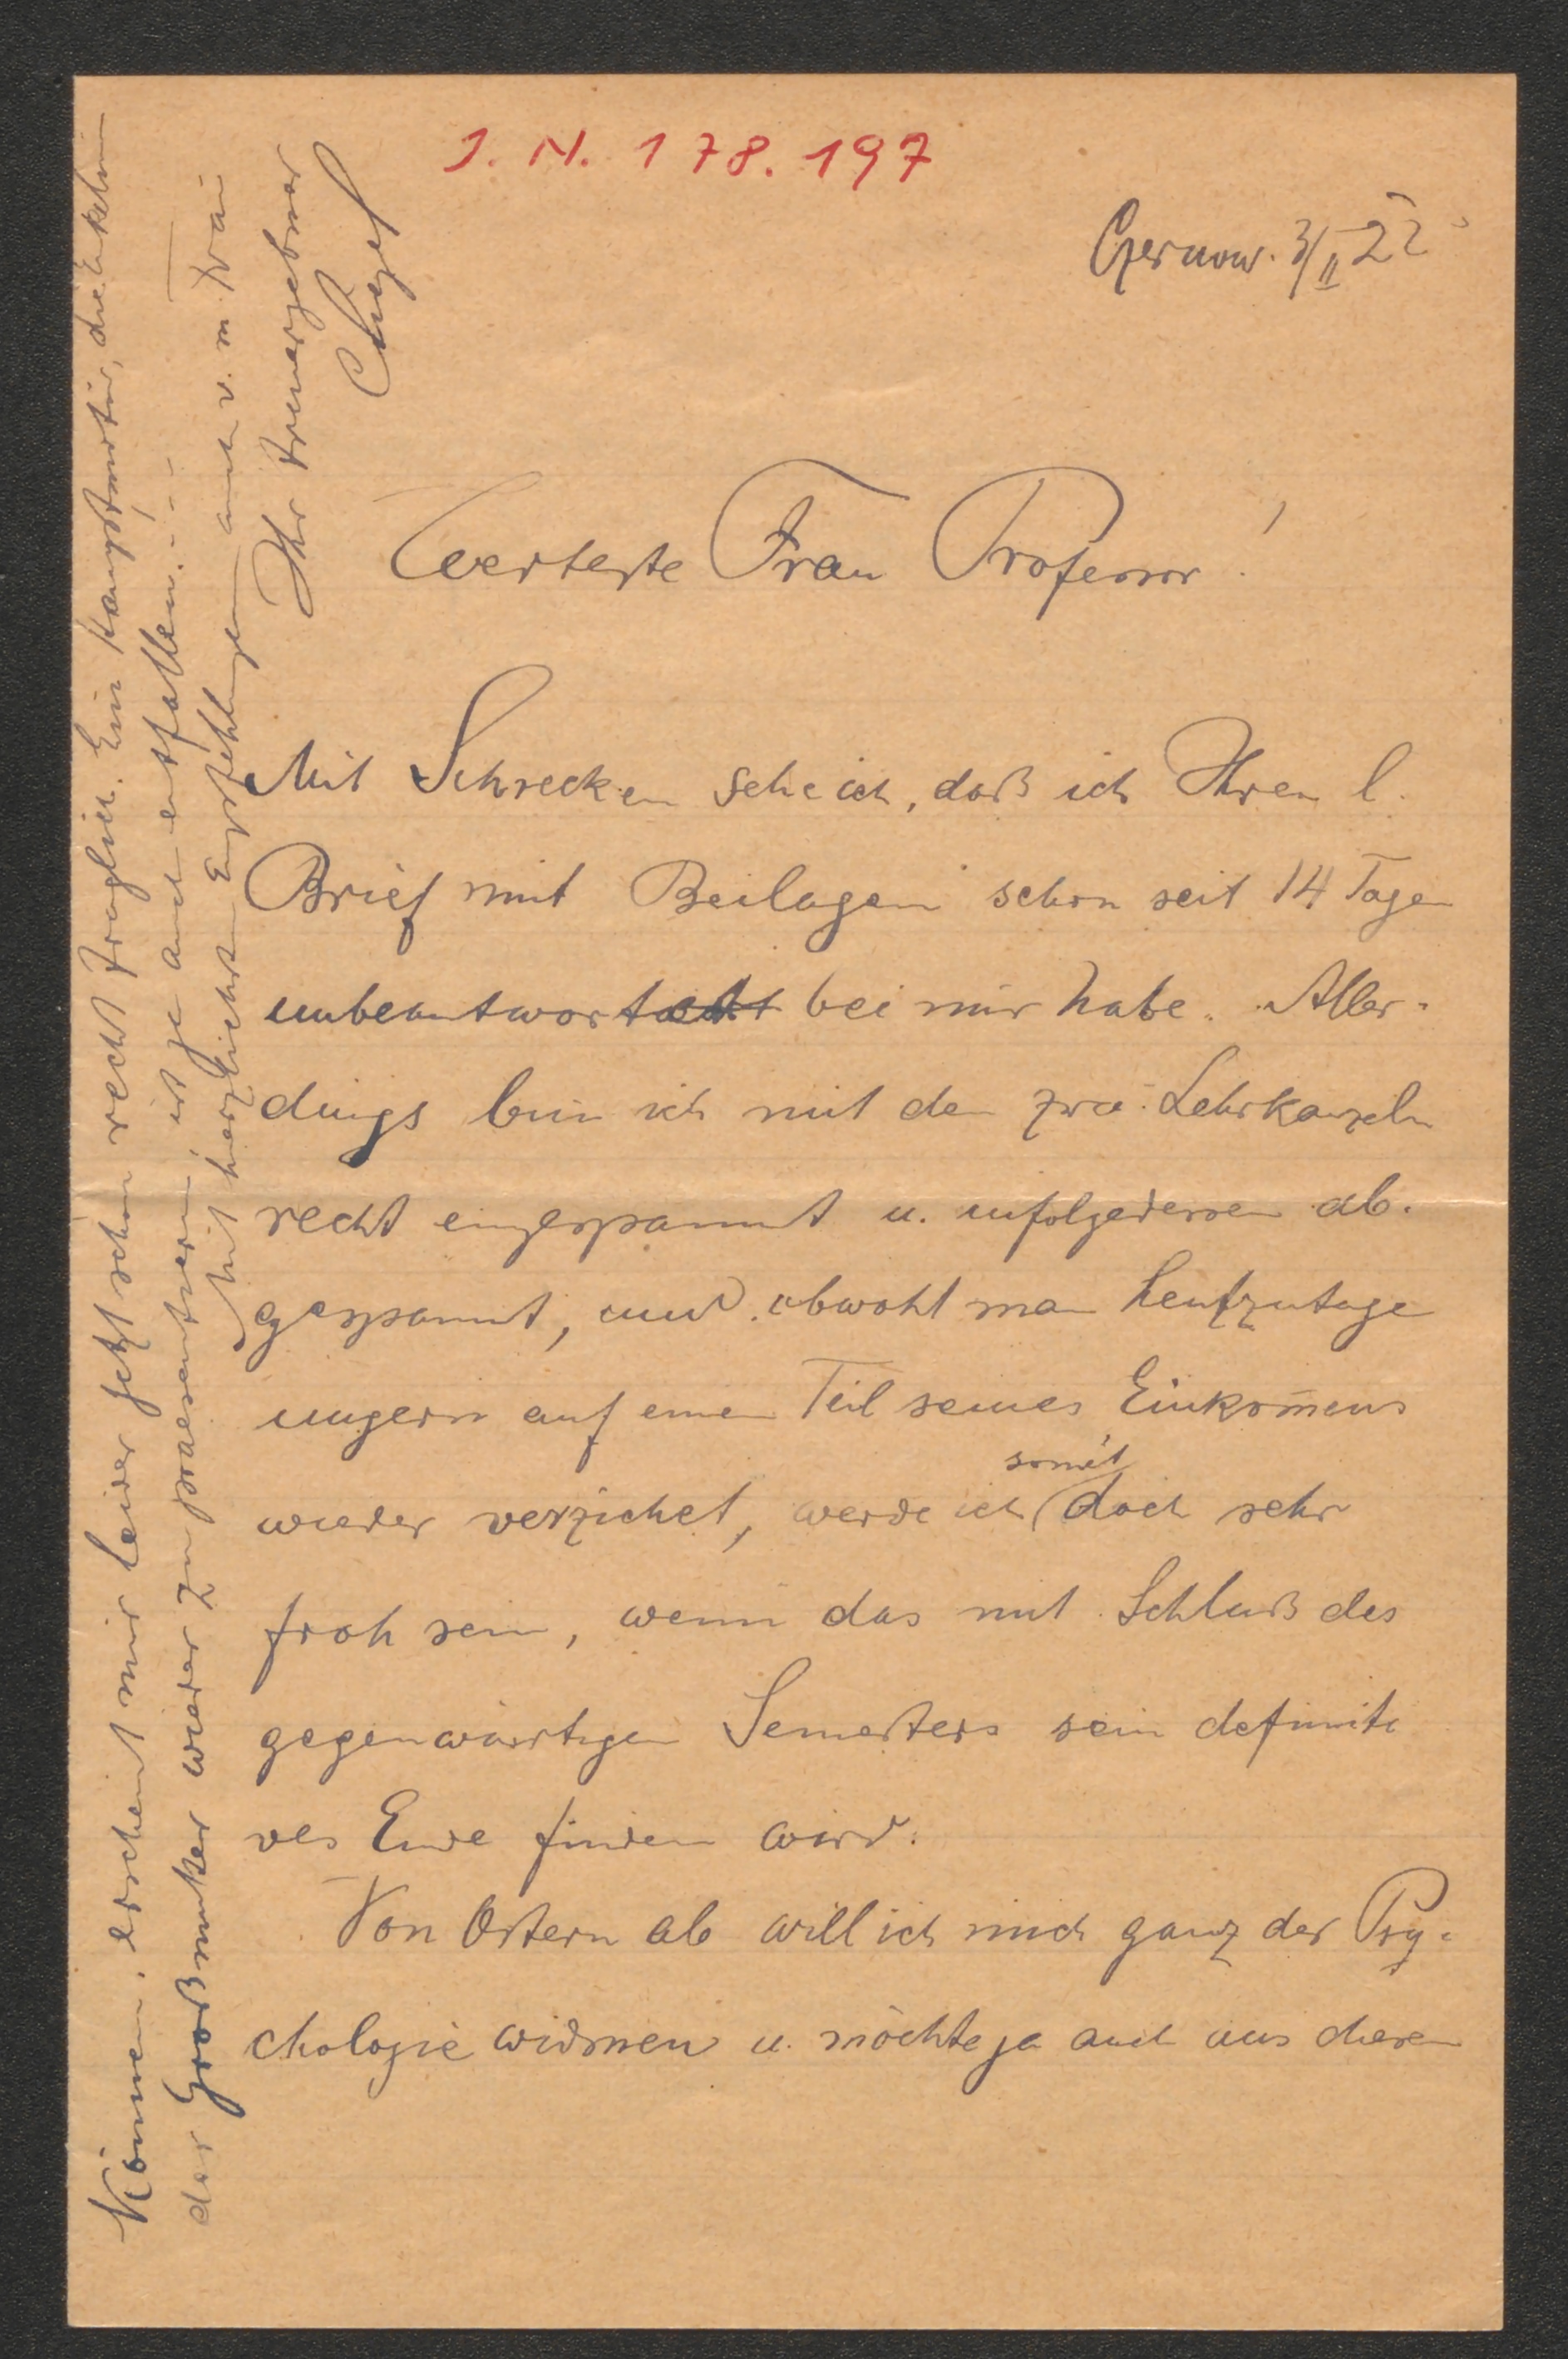 J. N. 178.197
Czernow. 3/II 22
Werteste Frau Professor!
Mit Schrecken sehe ich, daß ich Ihren l.
Brief mit Beilagen schon seit 14 Tagen
unbeantwortet bei mir habe. Aller-
dings bin ich mit den zwei Lehrkanzeln
recht eingespannt u. infolgedessen ab-
gespannt, und obwohl man heutzutage
ungern auf einen Teil seines Einkom̄ens
wieder verzichtet, werde ich somit doch sehr
froh sein, wenn das mit Schluß des
gegenwärtigen Semesters sein definiti
ves Ende finden wird.
Von Ostern ab will ich mich ganz der Psy-
chologie widmen u. möchte ja auch aus diesem
Können, erscheint mir leider jetzt schon recht fraglich. Ein Hauptmotiv, die Enkelin
der Großmutter wieder zu praesentieren, ist ja auch entfallen. - - -
Mit herzlichsten Empfehlungen auch v. m. Frau
Ihr treuergebener